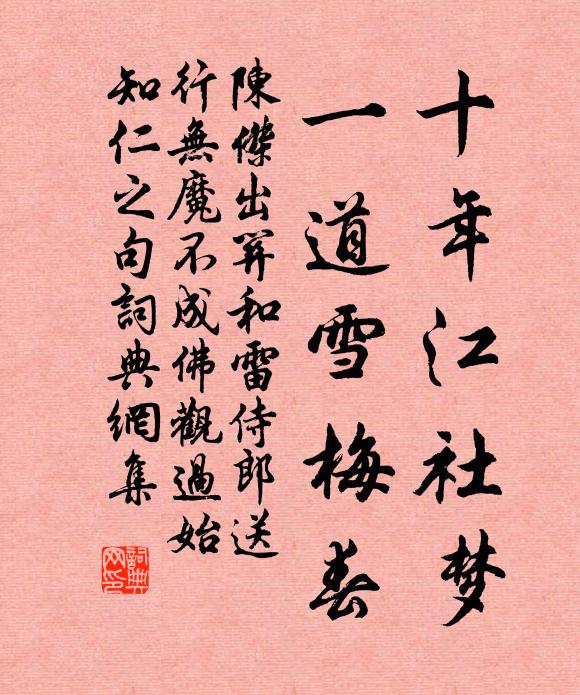 十年江社梦
一道雪梅春
陳傑出笄和雷侍郎送
行無魔不成佛觀過始
知仁之句詞典網集
詞典网印